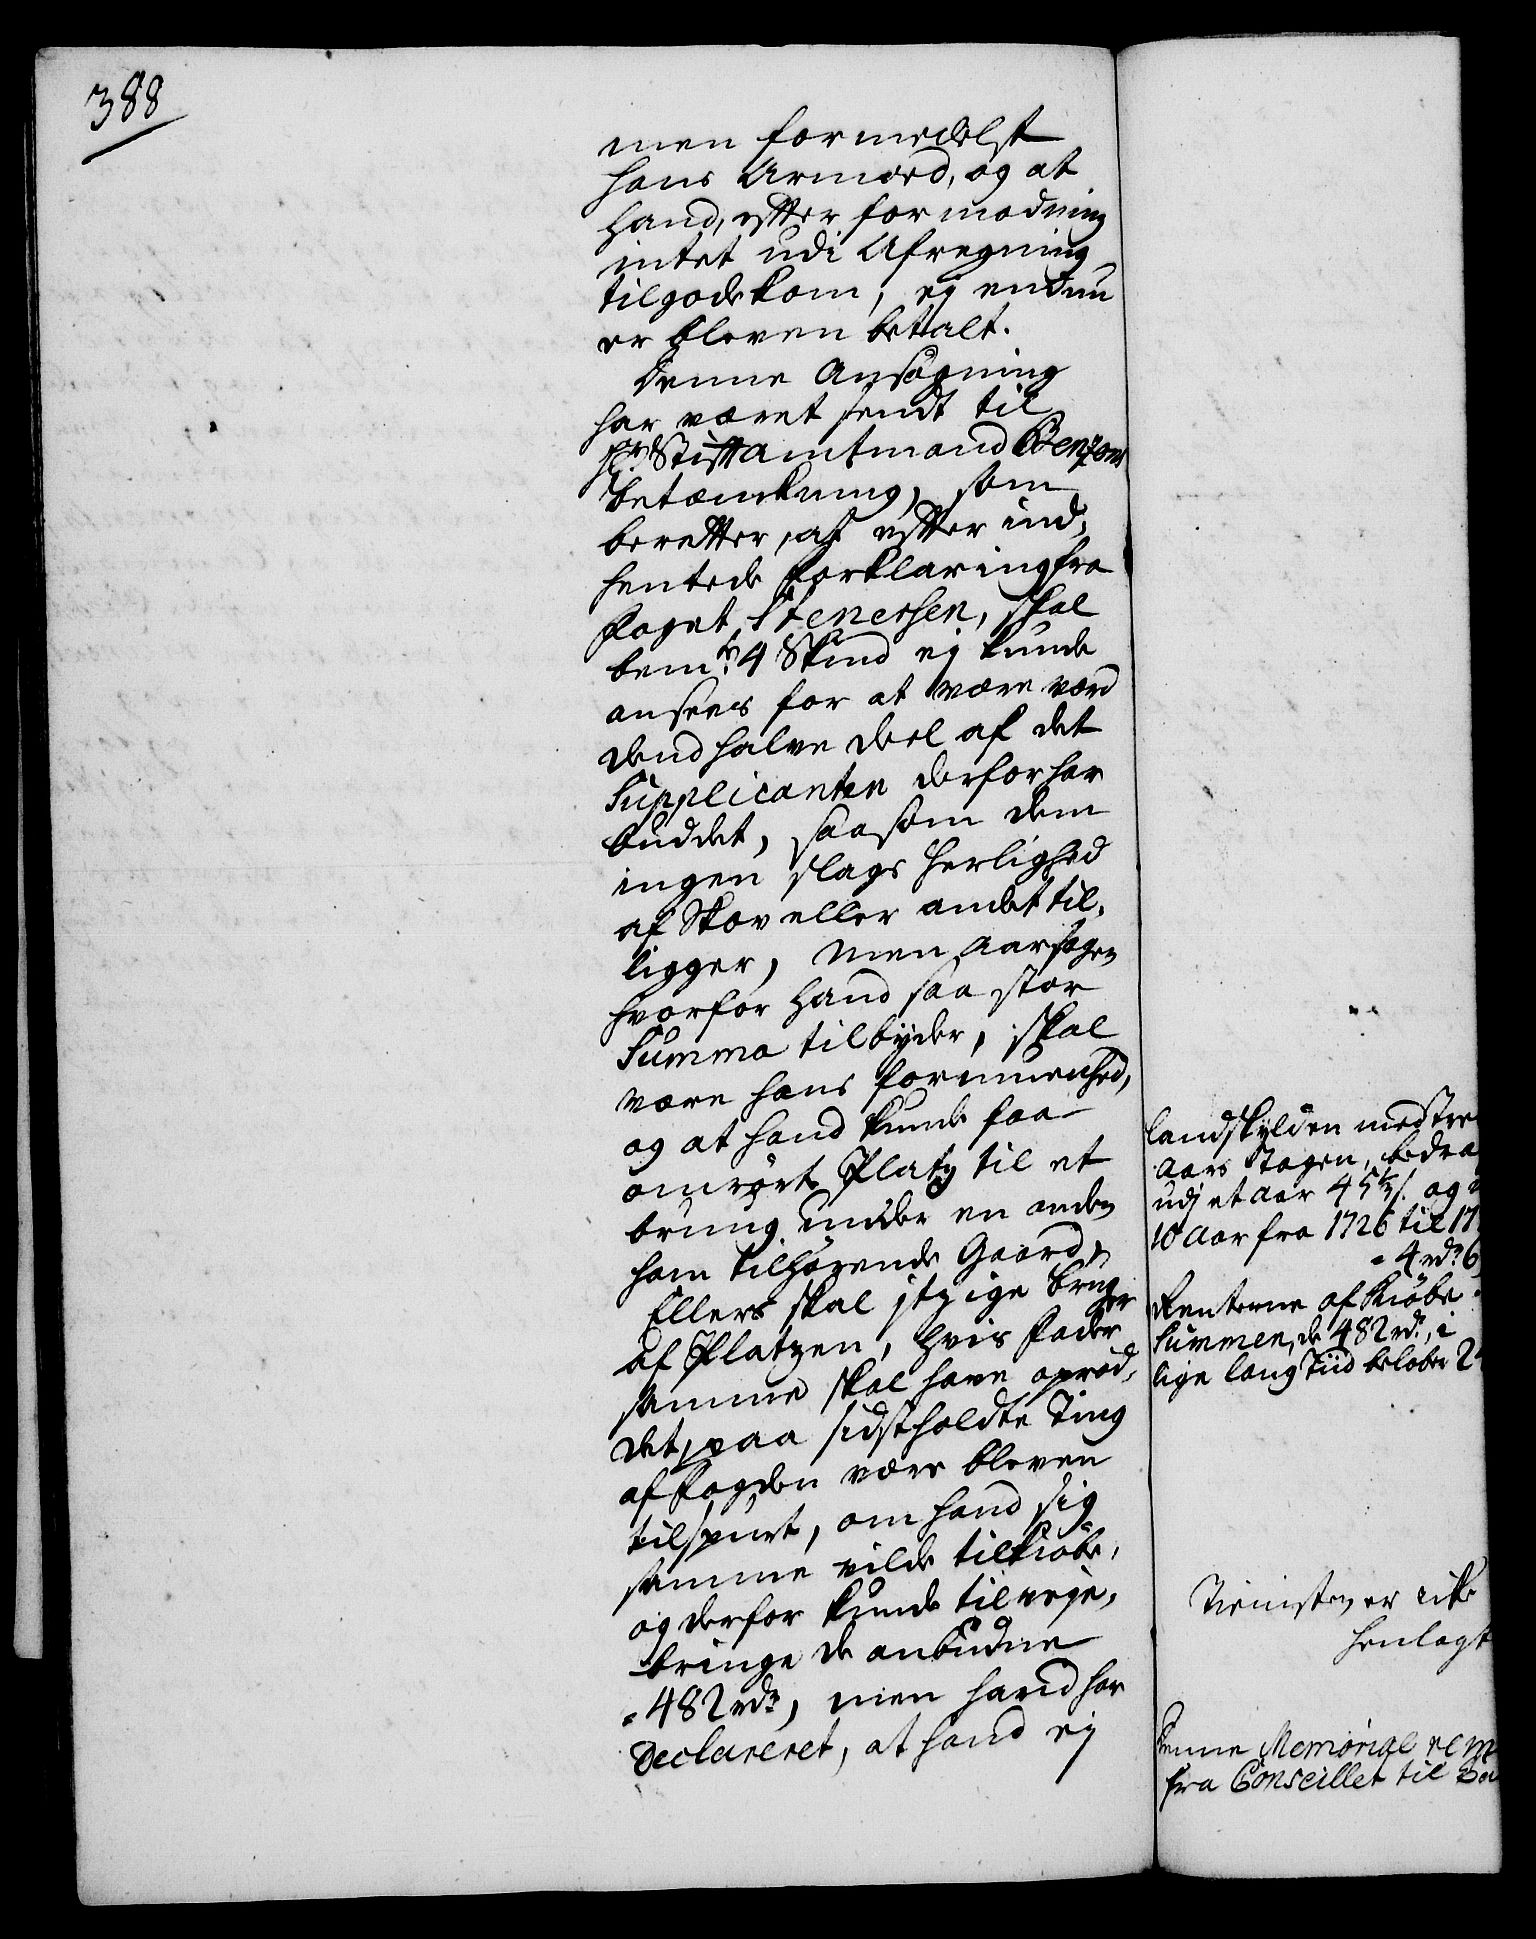 388
men formedelst
hans Armod, og at
hand, efter formodning
intet udi Afregning
tilgodekom, ej endnu
er bleven betalt.
Denne Ansøgning
har været sendt til
Hr Stiftamtmand Benzons
betænkning, som
beretter, at efter ind-
hentede forklaring fra
Foget Stenersen, skal
bemte 4 Skind ej kunde
ansees for at være værd
dend halve deel af det
Supplicanten derfor har
buddet, saasom dem
ingen slags herlighed
af Skov eller andet til-
ligger, men Aarsagen
hvorfor hand saa stor
Summa tilbyder, skal
være hans formuenhed,
og at hand kunde faa
omrørte Platz til et
brug under en anden
ham tilhørende Gaard,
Ellers skal itzige bruger
af Platzen, hvis Fader
samme skal have opryd-
det, paa sidstholdte Ting
af Fogden være bleven
tilspurt, om hand sig
samme vilde tilkiøbe,
og derfor kunde tilveje-
bringe de anbudne
482 rdr, men hand har
Declareret, at hand ej
Landskylden med tre
Aars Tagen, bedra
udj et Aar 45 1/3 s. og
10 Aar fra 1726 til 17
4 rdr 6
Renterne af Kiøbe
Summen, de 482 rdr, i
lige lang Tiid beløber 2
Tienisten er icke
henlagt
Denne Memorial
fra Conseillet til